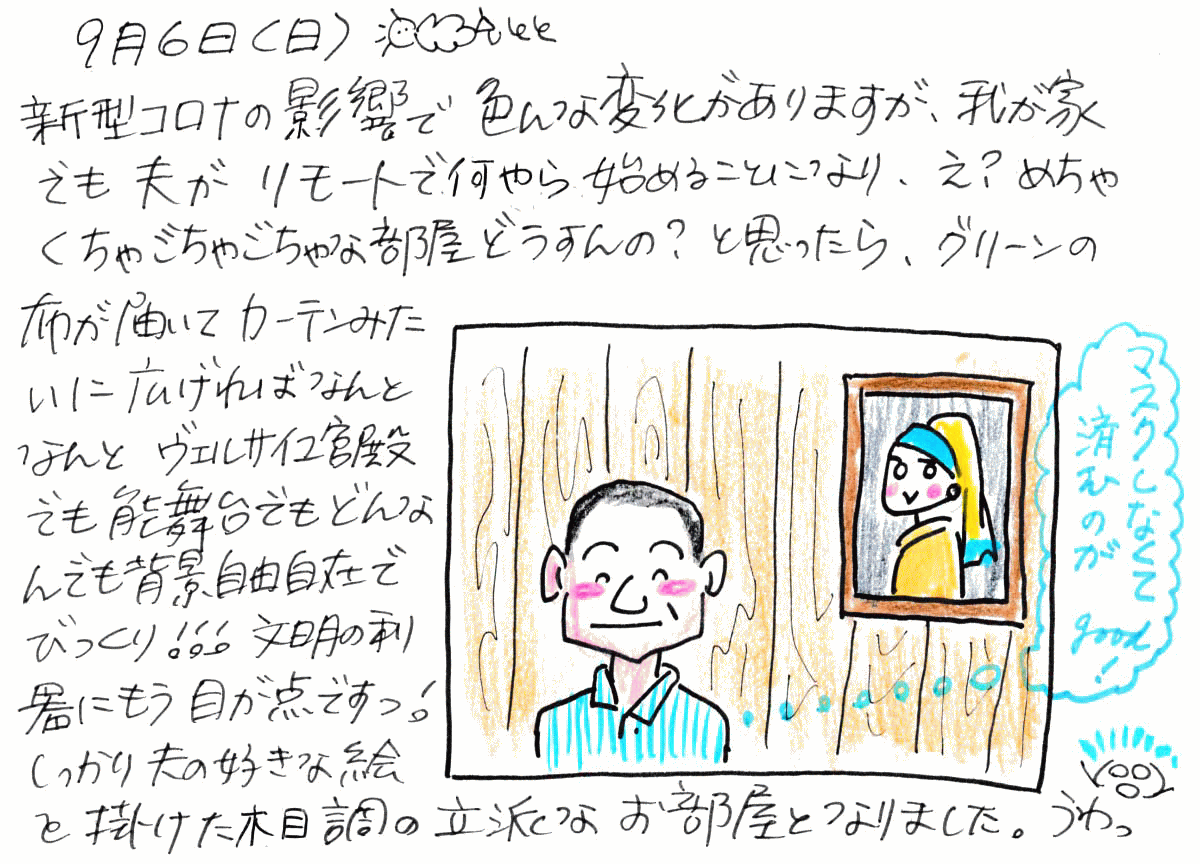 9月6日(日)
新型コロナの影響で 色んな変化がありますが、我が家
でも 夫が リモートで何やら 始めることになり、え？めちゃ
くちゃごちゃごちゃな部屋どうすんの？と思ったら、グリーンの
布が届いて カーテンみた
いに 広げればなんと
なんと ヴェルサイユ宮殿
でも 能舞台でもどんな
んでも背景自由自在で
びっくり!!! 文明の利
器にもう 目が点ですっ!
しっかり 夫の好きな絵
を 掛けた木目調の 立派な お部屋となりました。うわっ
マスクしなくて
済むのが
good!